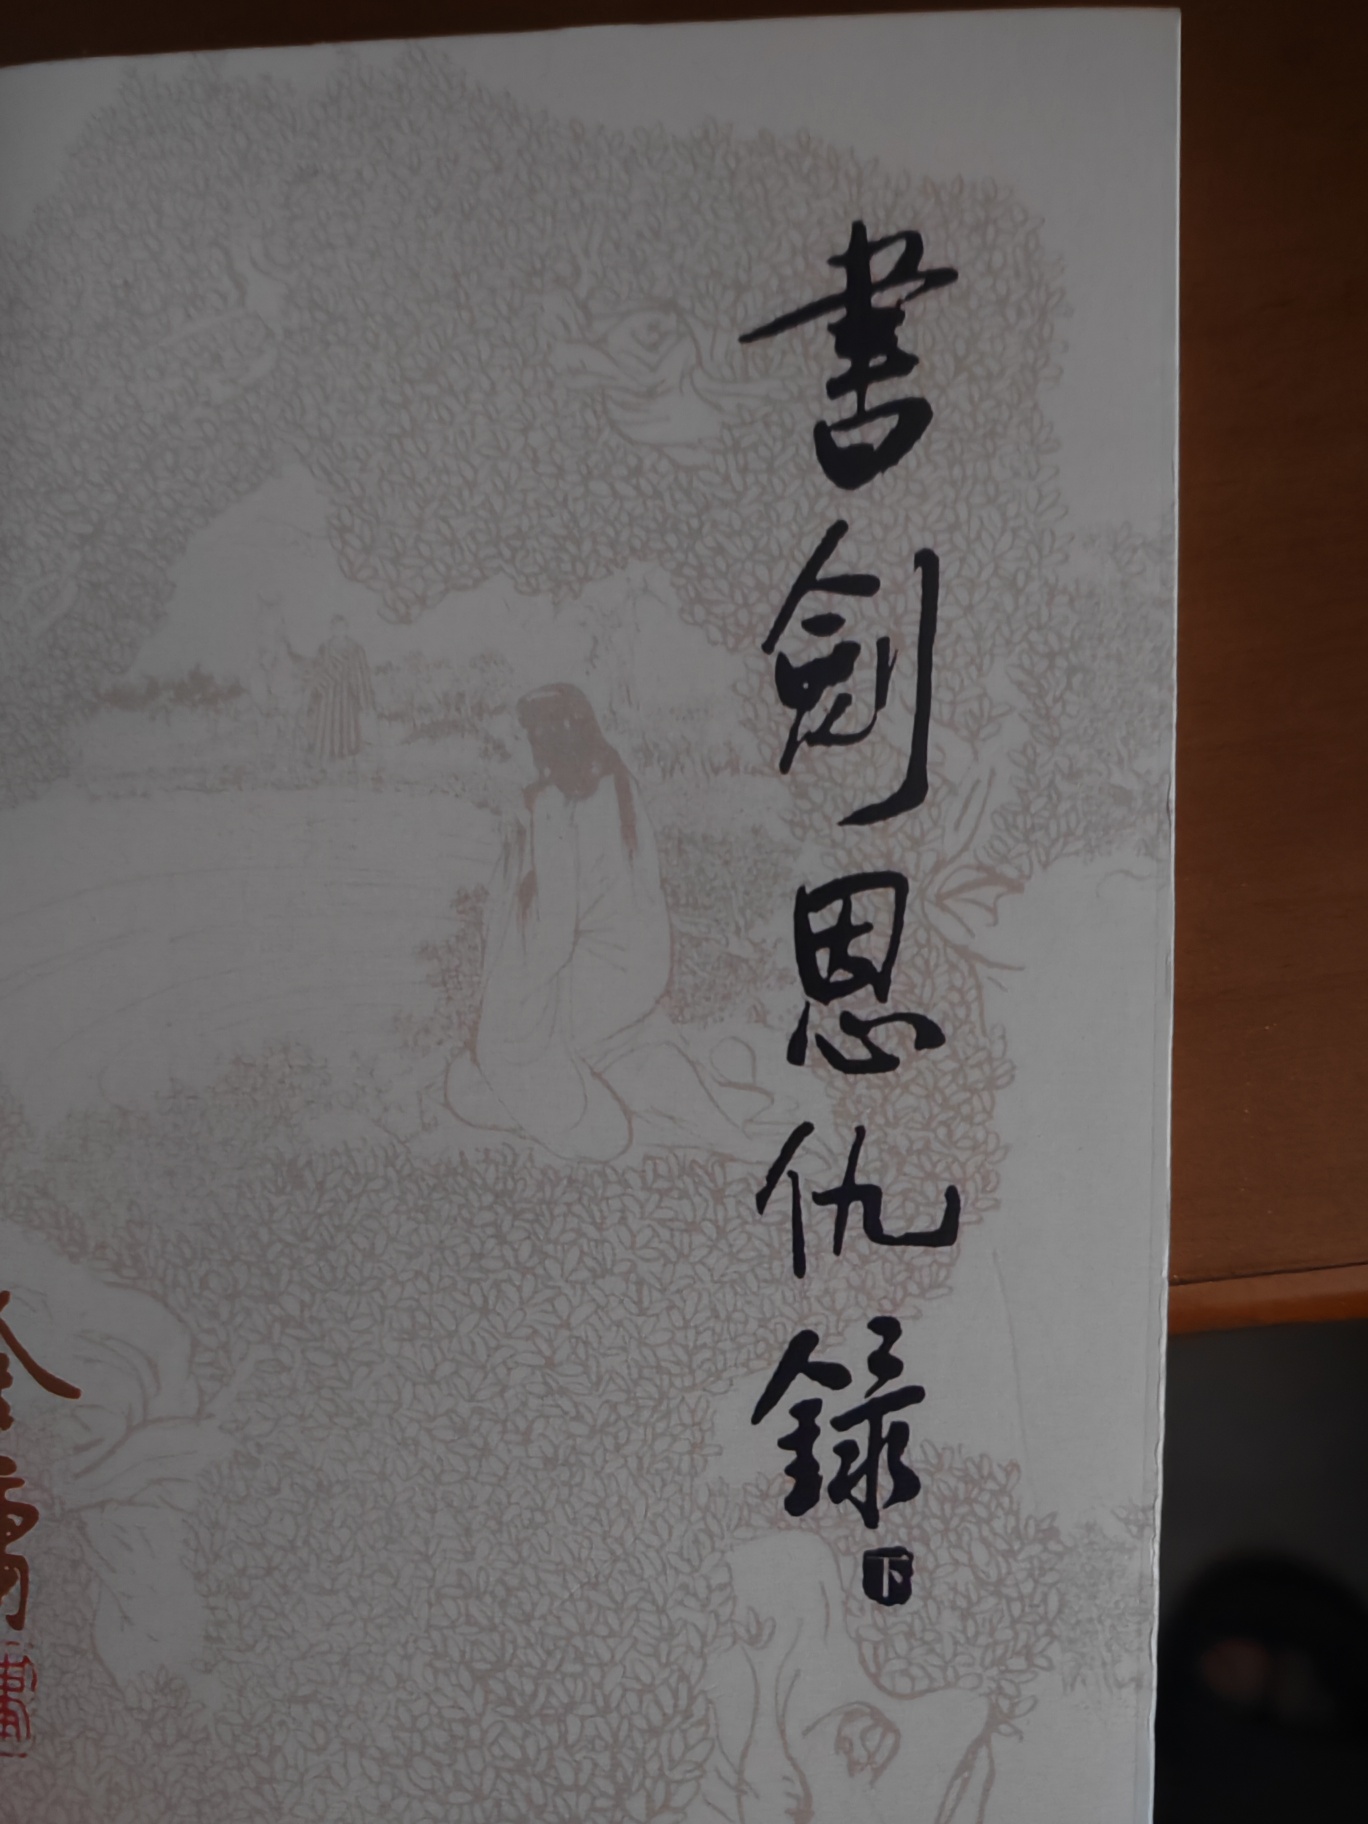 書劍恩仇錄
下
金庸